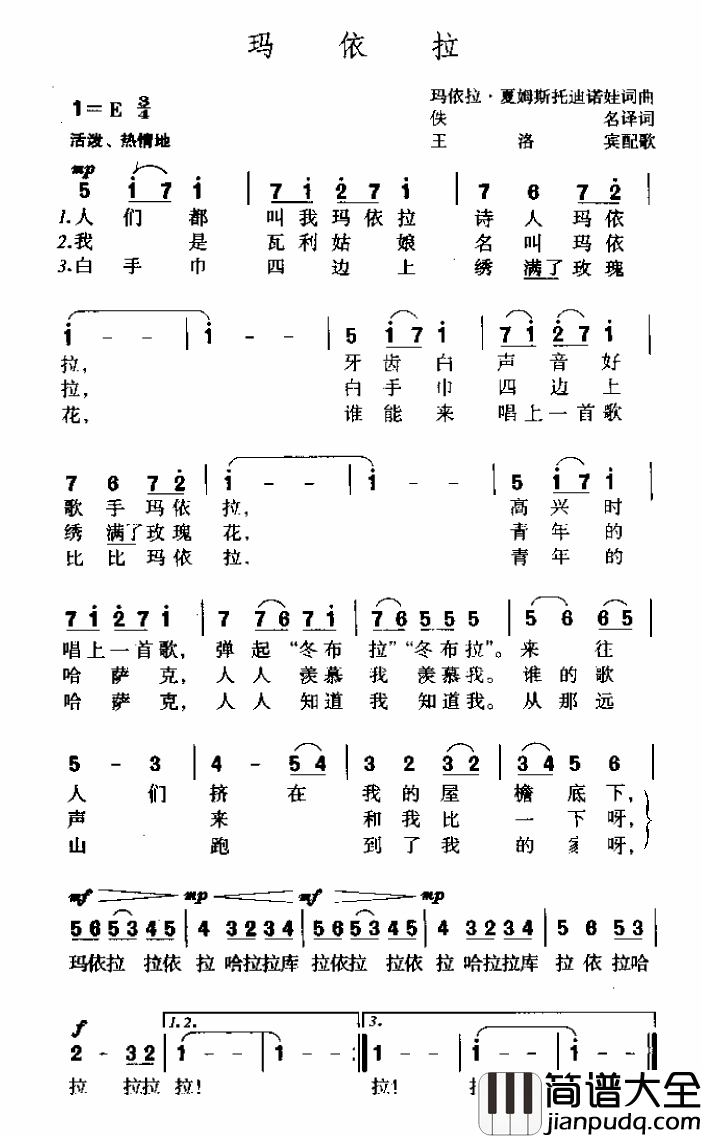 玛 依 拉
1=E 3/4
玛依拉·夏姆斯托迪诺娃词曲
佚 名译词
活泼、热情地
王 洛 宾配歌
mp
5 i 7 i | 7 i 2 7 i | 7 6 7 2 |
1.人 们 都 叫我玛依拉 诗 人 玛依
2.我 是 瓦利姑娘 名 叫 玛依
3.白 手 巾 四边上 绣 满了玫瑰
i - - | i - - | 5 i 7 i | 7 i 2 7 i |
拉, 牙 齿 白 声 音 好
拉, 白 手 巾 四 边 上
花, 谁 能 来 唱上一首歌
7 6 7 2 | i - - | i - - | 5 i 7 i |
歌 手 玛依 拉, 高 兴 时
绣 满了玫瑰 花, 青 年 的
比 比 玛依 拉. 青 年 的
7 i 2 7 i | 7 7 6 7 i | 7 6 5 5 5 | 5 6 6 5 |
唱上一首歌, 弹 起 “冬布 拉”“冬布拉”。来 往
哈 萨 克, 人 人 羡慕 我 羡慕我。谁 的 歌
哈 萨 克, 人 人 知道 我 知道我。从 那 远
5 - 3 | 4 - 5 4 | 3 2 3 2 | 3 4 5 6 |
人 们 挤 在 我 的 屋 檐 底 下,
声 来 和 我 比 一 下 呀,
山 跑 到 了 我 的 家 呀,
mf mp mf mp
5 6 5 3 4 5 | 4 3 2 3 4 | 5 6 5 3 4 5 | 4 3 2 3 4 | 5 6 5 3 |
玛依拉 拉依 拉 哈拉拉库 拉依拉 拉依 拉 哈拉拉库 拉 依 拉哈
f 1.2. 3.
2 - 3 2 | 1 - - | 1 - - :| 1 - - | 1 - - | 1 - -
拉 拉拉 拉! 拉!
简谱大全
jianpudq.com